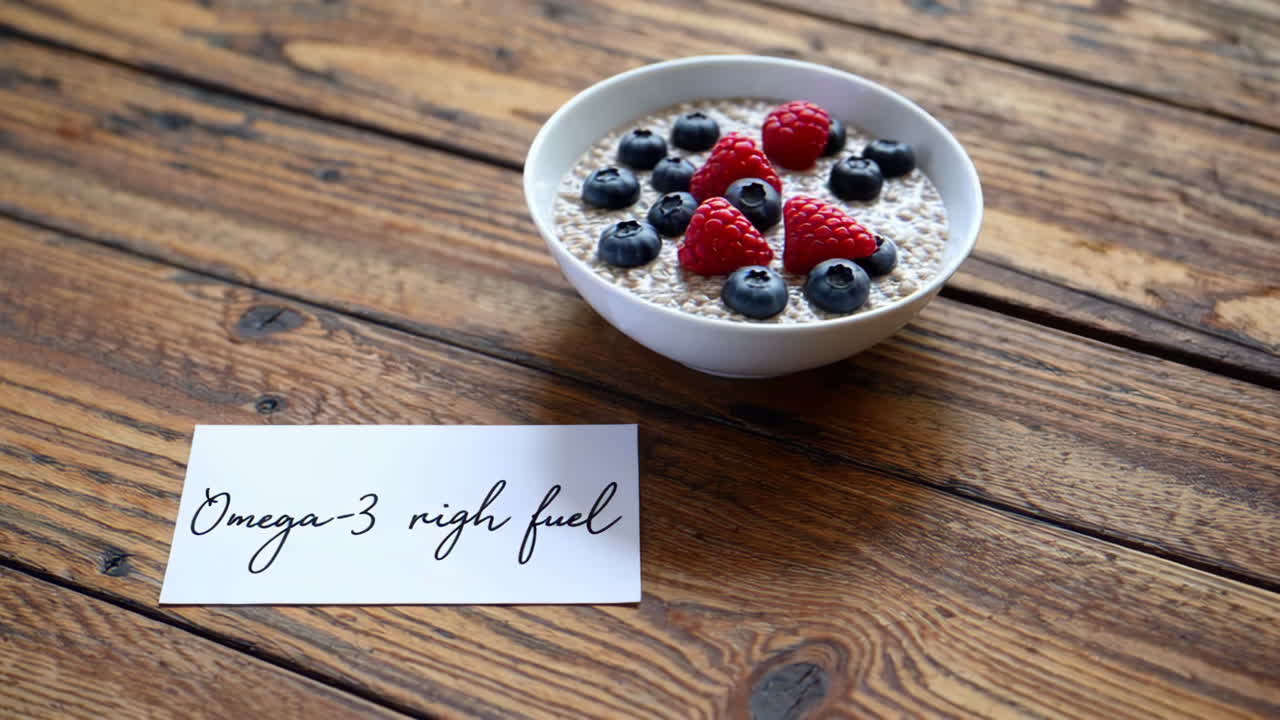 Omega-3 righ fuel